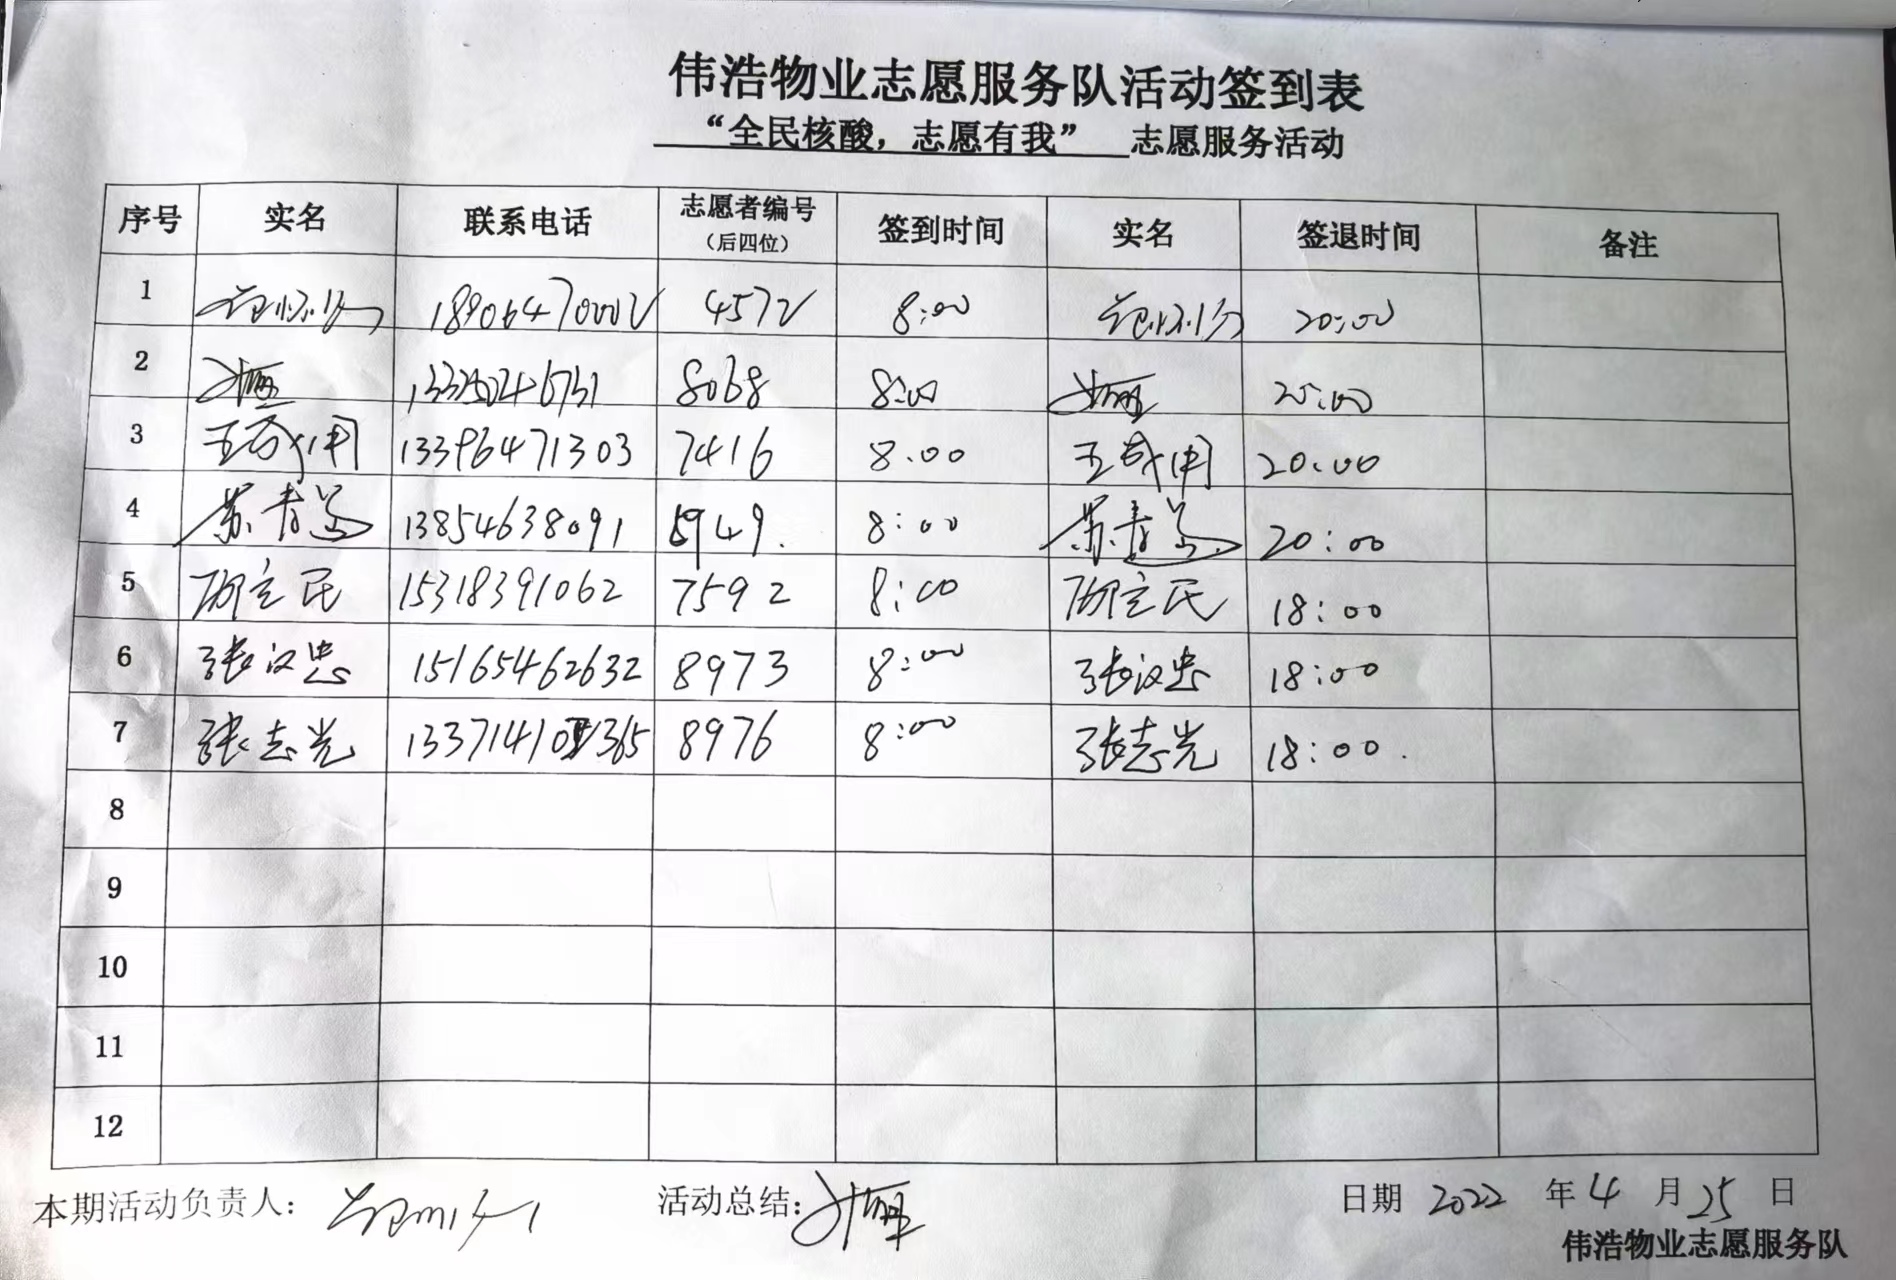 伟浩物业志愿服务队活动签到表
“全民核酸，志愿有我” 志愿服务活动
序号 实名 联系电话 志愿者编号（后四位） 签到时间 实名 签退时间 备注
1 18906470002 4572 8:00 20:00
2 8068 8:00 20:00
3 13396471303 7416 8:00 20:00
4 13854638091 5949. 8:00 20:00
5 15318391062 7592 8:00 18:00
6 张汉忠 15165462632 8973 8:00 张汉忠 18:00
7 张志光 8976 8:00 张志光 18:00.
8
9
10
11
12
本期活动负责人： 活动总结： 日期 2022 年 4 月 25 日
伟浩物业志愿服务队